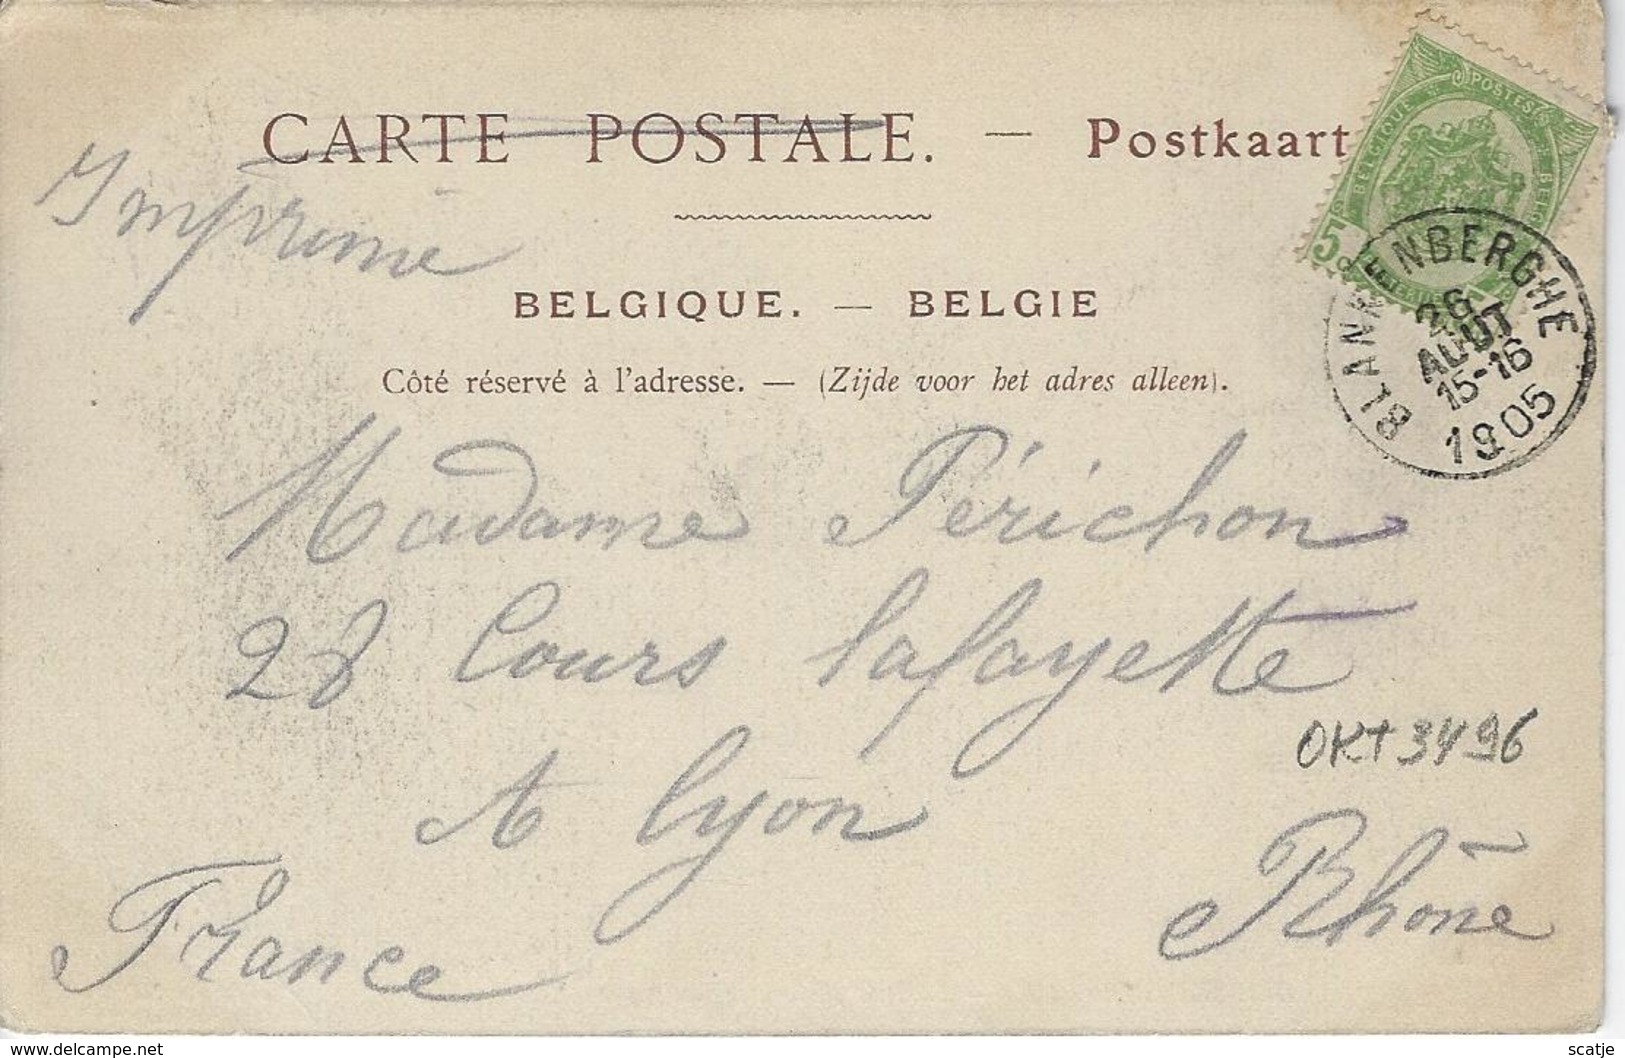 CARTE POSTALE. — Postkaart
Imprimé
BELGIQUE. — BELGIE
Côté réservé à l'adresse. — (Zijde voor het adres alleen).
POSTES
BELGIQUE
5
BLANKENBERGHE
26
AOUT
15-16
1905
Madame Périchon
28 Cours Lafayette
A Lyon
OKT3496
Rhône
France
www.delcampe.net
scatje